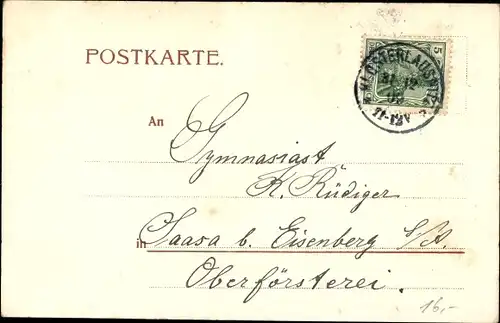 POSTKARTE.
5
KLOSTERLAUSNITZ
31 12
11-12V
An
Gymnasiast
K. Rüdiger
in Saasa b. Eisenberg S/A.
Oberförsterei.
16,-